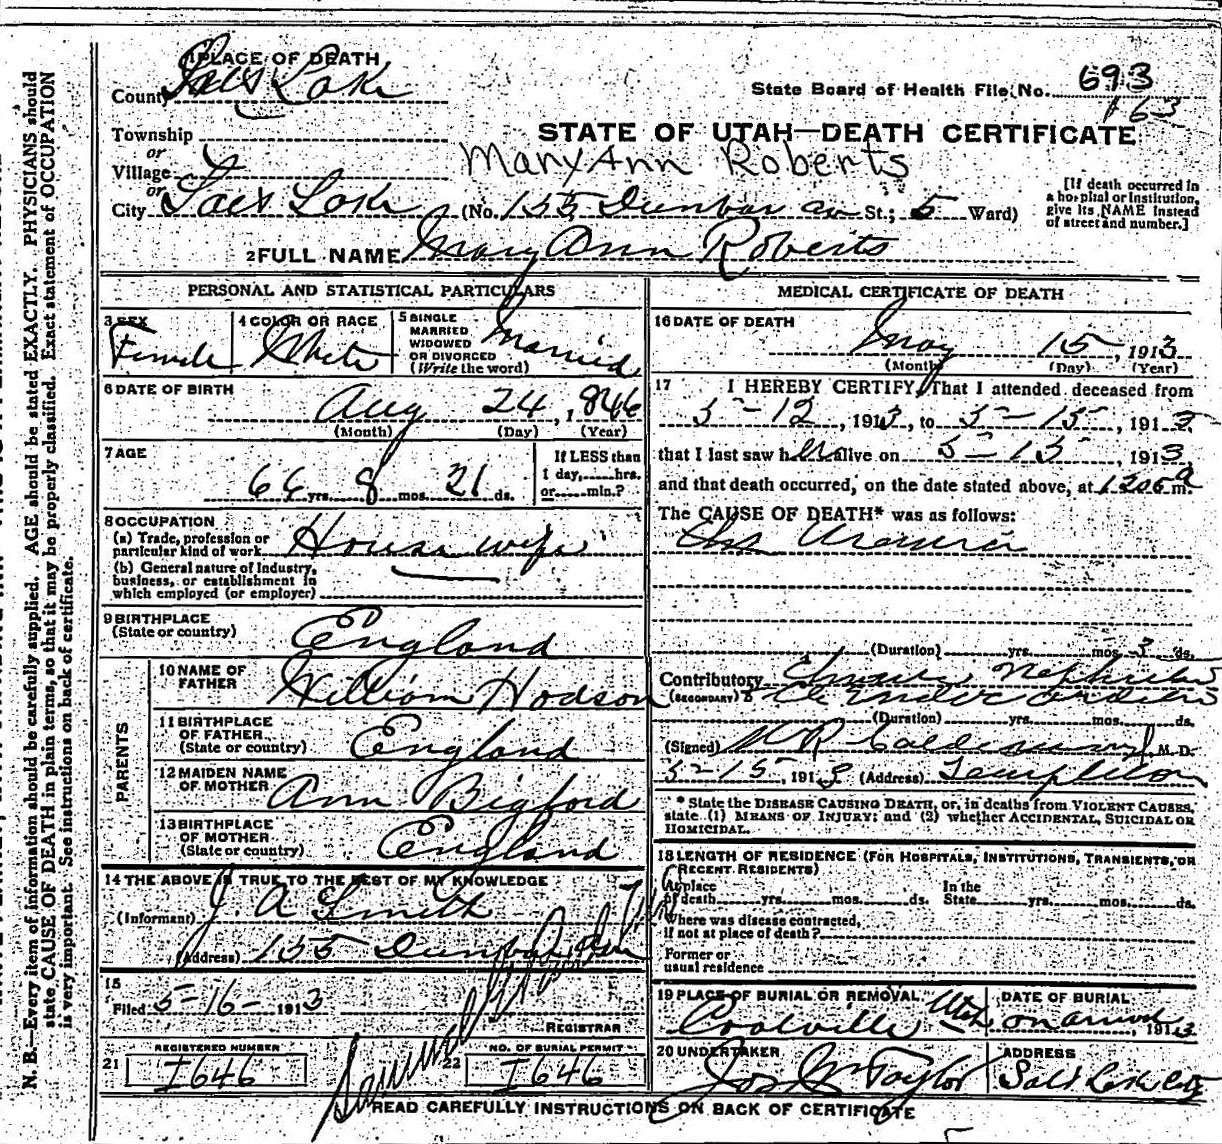 1 PLACE OF DEATH
County Salt Lake
State Board of Health File No. 693
163
Township
or
STATE OF UTAH—DEATH CERTIFICATE
Village
Mary Ann Roberts
or
City Salt Lake (No. 155 Dunbar av St.; 5 Ward)
[If death occurred in
a hospital or institution,
give its NAME instead
of street and number.]
2 FULL NAME Mary Ann Roberts
PERSONAL AND STATISTICAL PARTICULARS
3 SEX
Female
4 COLOR OR RACE
White
5 SINGLE
MARRIED
WIDOWED
OR DIVORCED
(Write the word)
Married
6 DATE OF BIRTH
Aug 24, 1846
(Month) (Day) (Year)
7 AGE
66 yrs. 8 mos. 21 ds.
If LESS than
1 day, hrs.
or min.?
8 OCCUPATION
(a) Trade, profession or
particular kind of work House wife
(b) General nature of industry,
business, or establishment in
which employed (or employer)
9 BIRTHPLACE
(State or country) England
PARENTS
10 NAME OF
FATHER William Hodson
11 BIRTHPLACE
OF FATHER
(State or country) England
12 MAIDEN NAME
OF MOTHER Ann Bigford
13 BIRTHPLACE
OF MOTHER
(State or country) England
14 THE ABOVE IS TRUE TO THE BEST OF MY KNOWLEDGE
(Informant) J. A Smith
(Address) 155 Dunbar
15
Filed 5-16- 1913
REGISTRAR
21 REGISTERED NUMBER
I646
22 NO. OF BURIAL PERMIT
I646
MEDICAL CERTIFICATE OF DEATH
16 DATE OF DEATH
May 15, 1913
(Month) (Day) (Year)
17 I HEREBY CERTIFY, That I attended deceased from
5-12, 1913, to 5-15, 1913
that I last saw her alive on 5-15, 1913
and that death occurred, on the date stated above, at 1205 a m.
The CAUSE OF DEATH* was as follows:
Uraemia
(Duration) yrs. mos. 3 ds.
Contributory Chronic Nephritis
(SECONDARY)
(Duration) yrs. mos. ds.
(Signed) M. D.
5-15, 1913 (Address) Templeton
* State the DISEASE CAUSING DEATH, or, in deaths from VIOLENT CAUSES,
state (1) MEANS OF INJURY; and (2) whether ACCIDENTAL, SUICIDAL OR
HOMICIDAL.
18 LENGTH OF RESIDENCE (FOR HOSPITALS, INSTITUTIONS, TRANSIENTS, OR
RECENT RESIDENTS)
At place
of death yrs. mos. ds.
In the
State yrs. mos. ds.
Where was disease contracted,
if not at place of death?
Former or
usual residence
19 PLACE OF BURIAL OR REMOVAL
Coalville Utah
DATE OF BURIAL
on arrival, 1913
20 UNDERTAKER
Jos Wm Taylor
ADDRESS
Salt Lake City
READ CAREFULLY INSTRUCTIONS ON BACK OF CERTIFICATE
N. B.—Every item of information should be carefully supplied. AGE should be stated EXACTLY. PHYSICIANS should
state CAUSE OF DEATH in plain terms, so that it may be properly classified. Exact statement of OCCUPATION
is very important. See instructions on back of certificate.